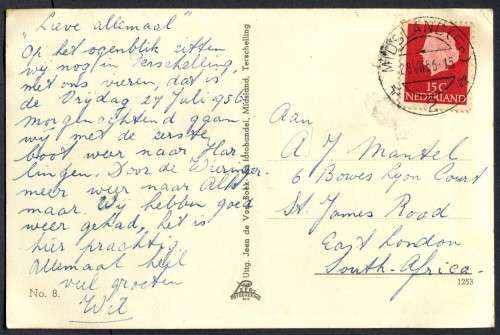 "Lieve allemaal"
Op het ogenblik zitten
wij nog in Terschelling,
met ons vieren, dat is
de Vrijdag 27 Juli 1956
morgenochtend gaan
wij met de eerste
boot weer naar Har
lingen. Door de Wieringer
meer weer naar Alk
maar. Wij hebben goed
weer gehad, het is
hier prachtig.
Allemaal heel
veel groeten
Wil
No. 8.
Uitg. Jeen de Vos. Bokk. Idohandel, Midsland, Terschelling
MIDSLAND
15 C
NEDERLAND
Aan
A. J. Mantel
6 Bowes Lyon Court
St. James Road
East London
South-Africa.
1253